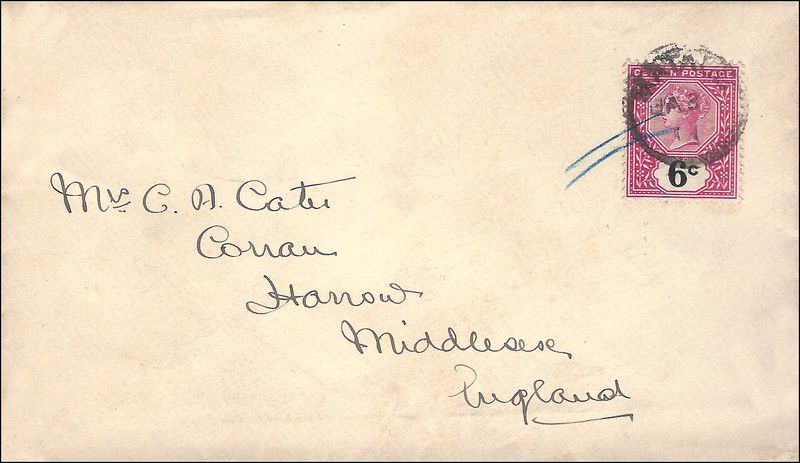 CEYLON POSTAGE
JA 3
6c
Mrs. C. A. Cater
Corran
Harrow
Middlesex
England